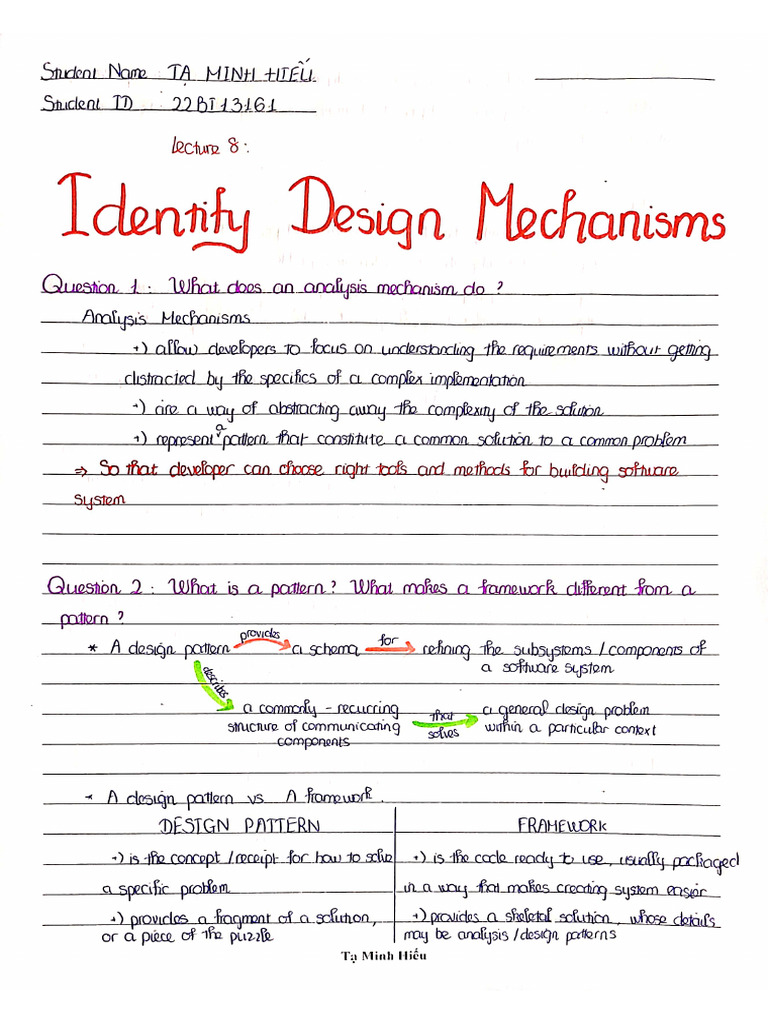 Student Name : TẠ MINH HIẾU
Student ID : 22BI13161
Lecture 8:
Identify Design Mechanisms
Question 1 : What does an analysis mechanism do ?
Analysis Mechanisms
+) allow developers to focus on understanding the requirements without getting
distracted by the specifics of a complex implementation
+) are a way of abstracting away the complexity of the solution
+) represent a pattern that constitute a common solution to a common problem
⇒ So that developer can choose right tools and methods for building software
system
Question 2 : What is a pattern? What makes a framework different from a
pattern ?
* A design pattern provides a schema for refining the subsystems / components of
a software system
describes a commonly - recurring that a general design problem
structure of communicating solves within a particular context
components
* A design pattern vs A framework.
DESIGN PATTERN FRAMEWORK
+) is the concept / receipt for how to solve +) is the code ready to use, usually packaged
a specific problem in a way that makes creating system easier
+) provides a fragment of a solution, +) provides a skeletal solution, whose details
or a piece of the puzzle may be analysis / design patterns
Tạ Minh Hiếu